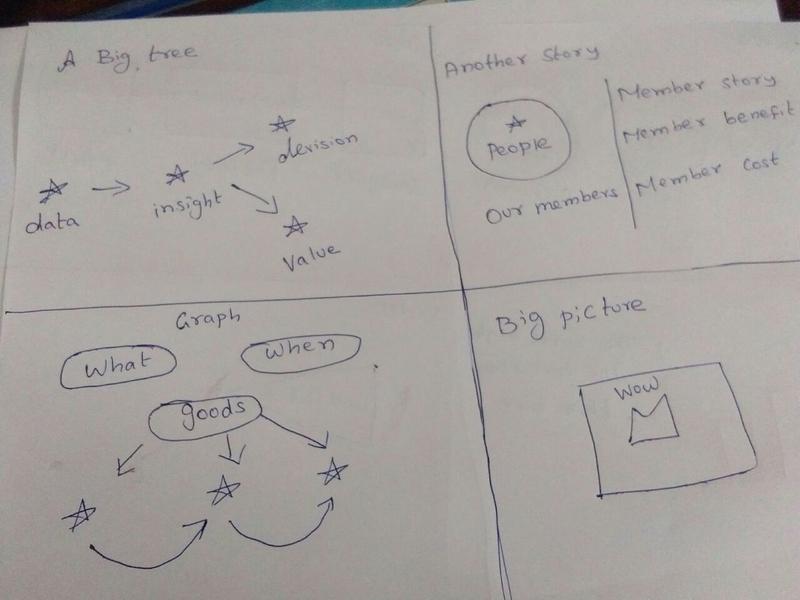 A Big tree
derision
data
insight
Value
Another Story
People
Our members
Member story
Member benefit
Member cost
Graph
What
When
goods
Big picture
WOW